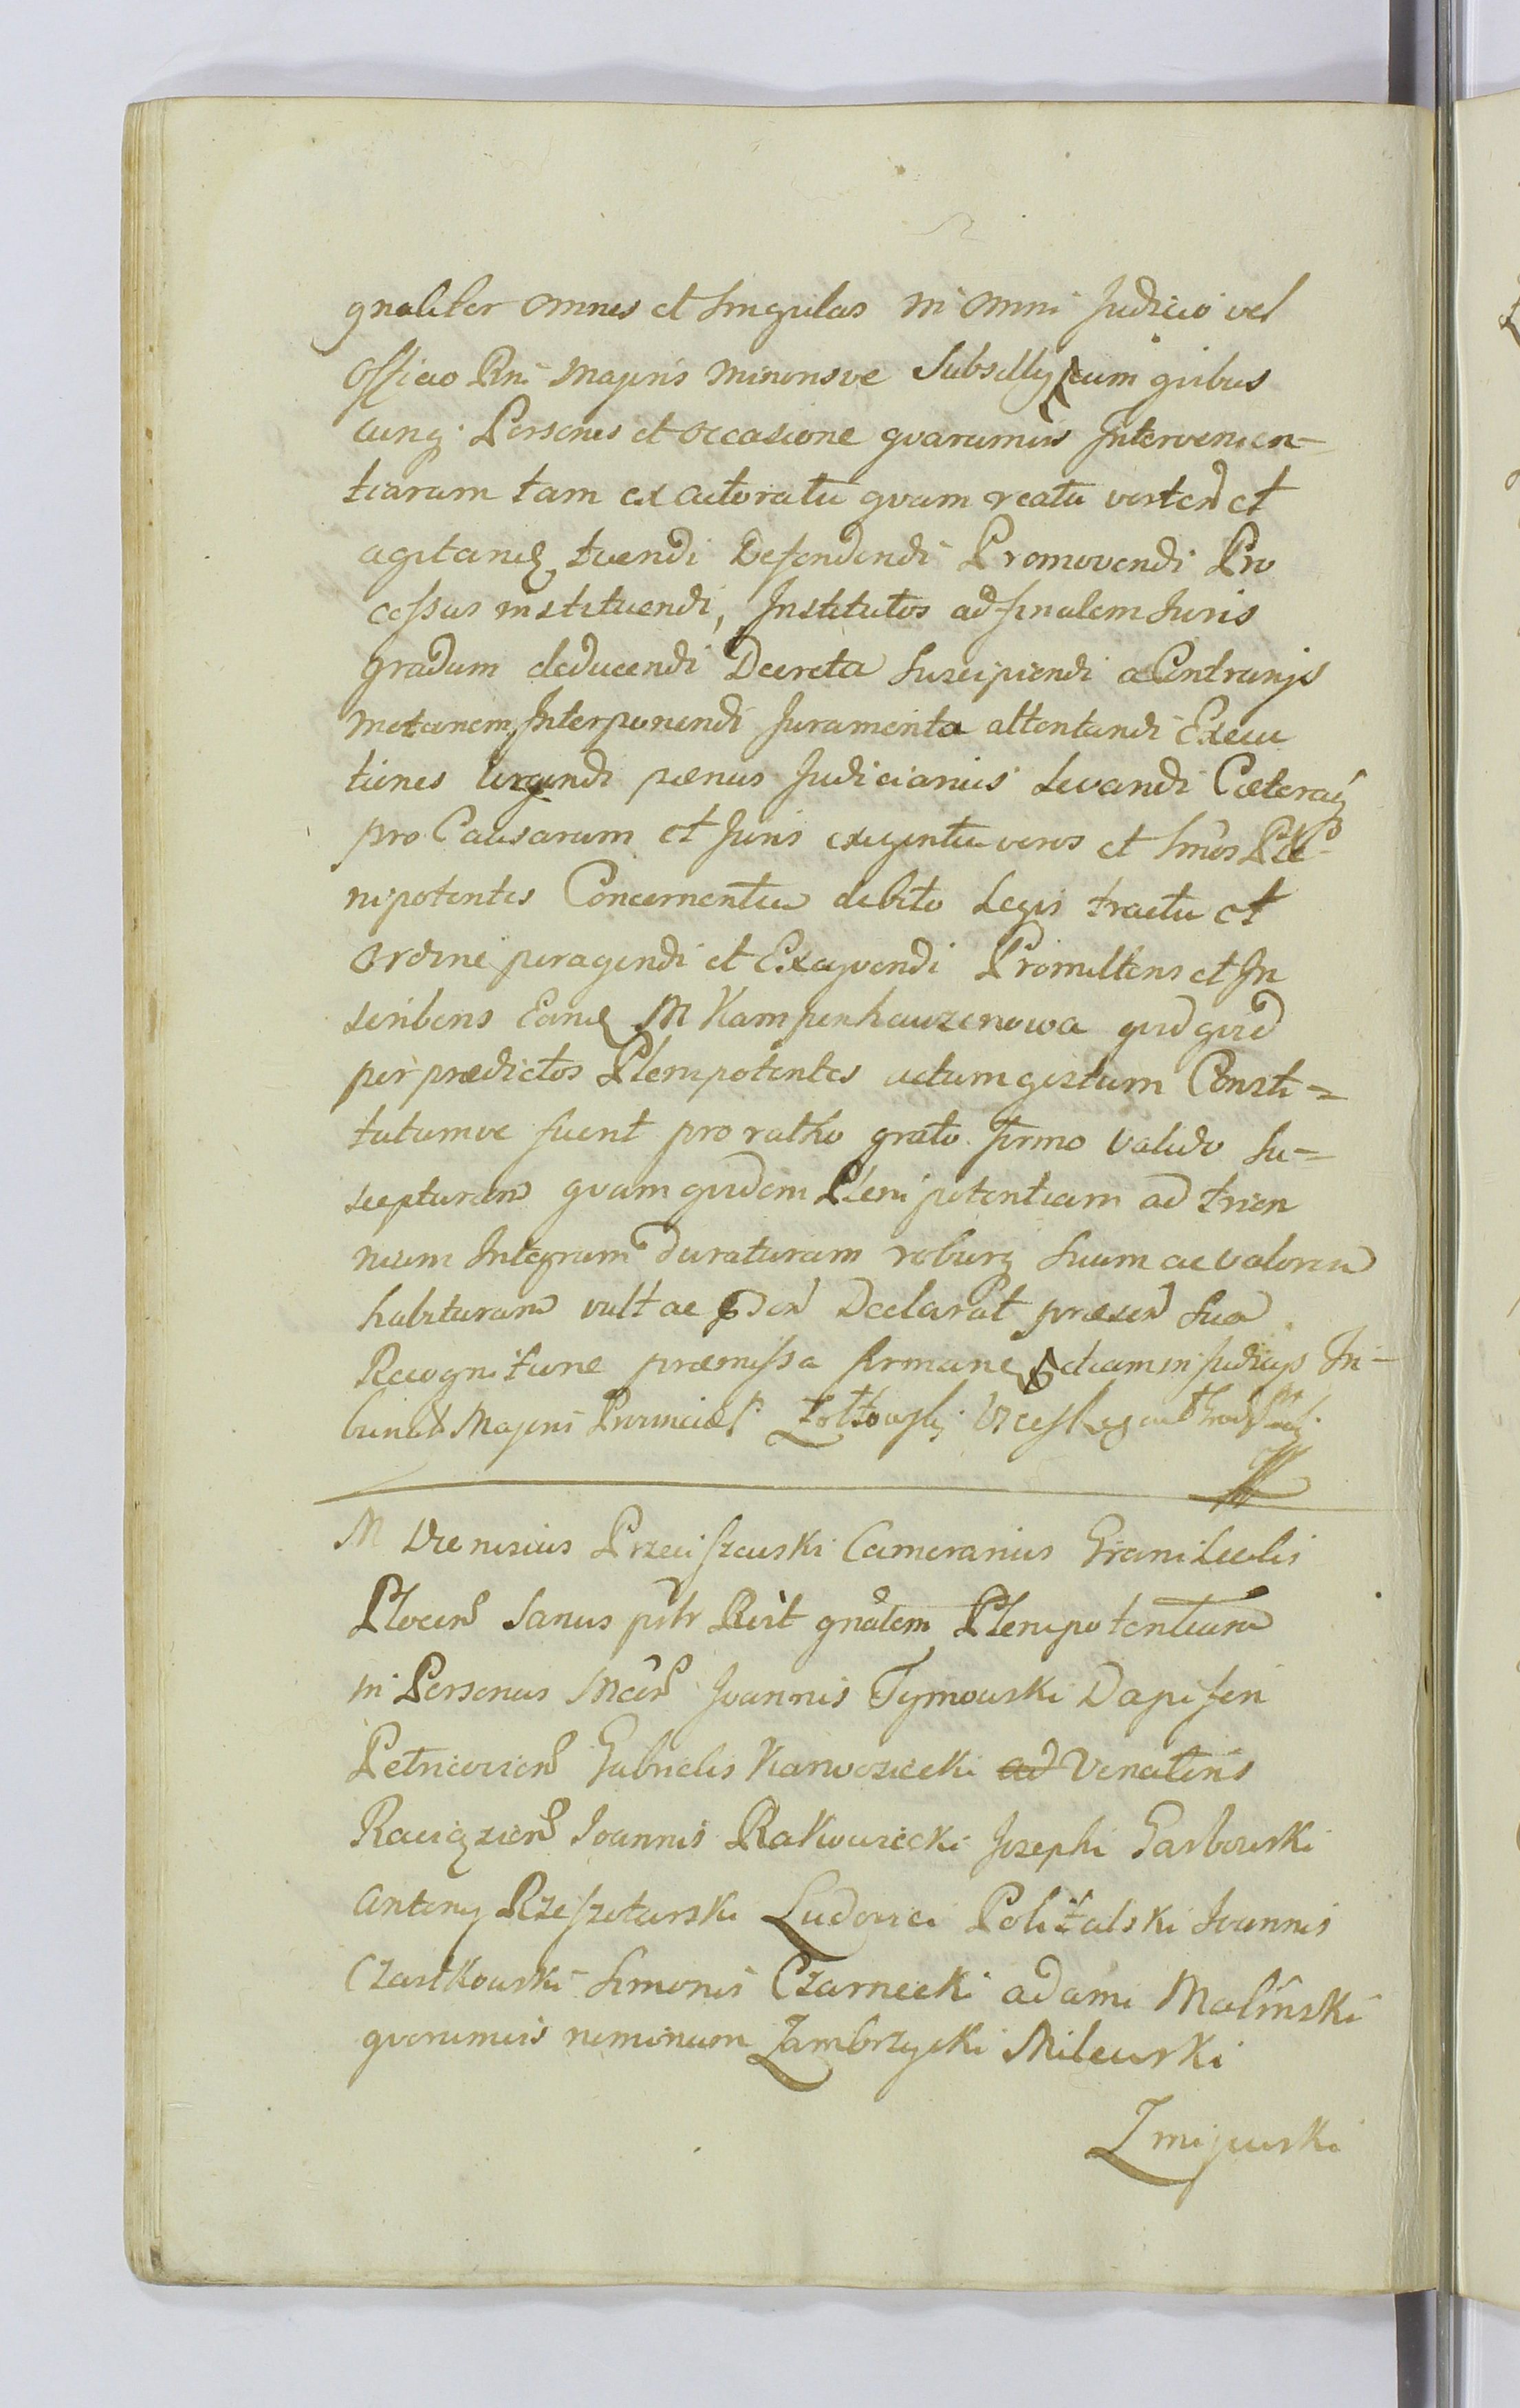 gnaliter omnes et singulas in omni Judicio vel
Officio Rni Majoris Minorisve Subsellij cum quibus
cunq. Personis et occasione quarumvis Intervenien-
tiarum tam ex actoratu quam reatu verten et
agitand. tuendi Defendendi Promovendi Pro
cessus instituendi, Institutos ad finalem Juris
gradum deducendi Decreta suscipiendi a Contrarijs
Motionem Interponendi Juramenta attentandi Execu
tiones urgendi paenas Judiciarias Levandi Caeteraq
pro Causarum et Juris exigentia veros et Ple
nipotentes Concernentia debito Legis tractu et
ordine peragendi et Exequendi Promittens et In
scribens Eand M Kampenhauzenowa quidquid
per praedictos Plenipotentes actum gestum Consti=
tutumve fuerit pro ratho grato firmo valido su=
scepturam quam quidem Plenipotentiam ad trien
nium Integrum duraturam roburq suum ac valorem
habituram vult ac Declarat praesen sua
Recognitione praemissa firmans etiam in Judicijs Tri-
bunal Majoris Provinciae
M Dienisius Przeciszewski Camerarius Granicialis
Plocen Sanus pntr Rcit gnalem Plenipotentiam
in Personas Mcor Joannis Tymowski Dapiferi
Petricovien Gabrielis Karwosiecki ad Venatoris
Raciązien Joannis Rakowiecki Josephi Garbowski
Antonij Rzeszotarski Ludovici Politalski Joannis
Czartkowski Simonis Czarnecki adami Malinski
quorumvis nominum Zambrzycki Milewski
Zmijewski